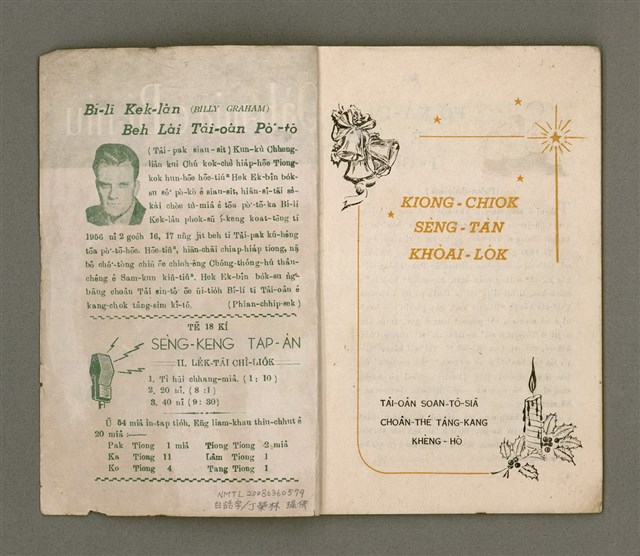 Bí-lí Kek-lân (BILLY GRAHAM)
Beh Lâi Tâi-oân Pò͘-tō
(Tâi-pak siau-sit) Kun-kù Chheng-
liân kui Chú kok-chè hia̍p-hōe Tiong-
kok hun-hōe hōe-tiúⁿ Hek Ek-bîn bo̍k-
su só͘ pò-kò ê siau-sit, hiān-sî-tāi sè-
kài chòe tú-miâ ê tōa pò͘-tō-ka Bí-lí
Kek-lân phok-sū í-keng koat-tēng tī
1956 nî 2 goe̍h 16, 17 nn̄g ji̍t beh tī Tâi-pak kú-hêng
tōa pò͘-tō-hōe. Hōe-tiúⁿ, hiān-chāi chiap-hia̍p tiong, nā
bô chó͘-tòng chiū ōe chioh-ēng Chóng-thóng-hú thâu-
chêng ê Sam-kun kiû-tiûⁿ. Hek Ek-bîn bo̍k-su ǹg-
bāng choân Tâi sìn-tô͘ ōe ūi-tio̍h Bí-lí tī Tâi-oân ê
kang-chok tâng-sim kî-tó. (Phian-chhip-sek)
TĒ 18 KÎ
SÈNG-KENG TAP-ÀN
II. LE̍K-TĀI CHÌ-LIO̍K
1. Tī hūi chhang-miâ. (1:10)
2. 20 nî. (8:1)
3. 40 nî (9:30)
Ū 54 miâ ìn-tap tio̍h, Eng liam-khau thiu-chhut ê
20 miâ :—
Pak Tiong 1 miâ Tiong Tiong 2 miâ
Ka Tiong 11 Lâm Tiong 1
Ko Tiong 4 Tang Tiong 1
NMTL20086360579
白話字/丁榮林
KIONG-CHIOK
SÈNG-TÀN
KHÒAI-LO̍K
TÂI-OÂN SOAN-TŌ-SIĀ
CHOÂN-THÉ TÂNG-KANG
KHÈNG-HŌ